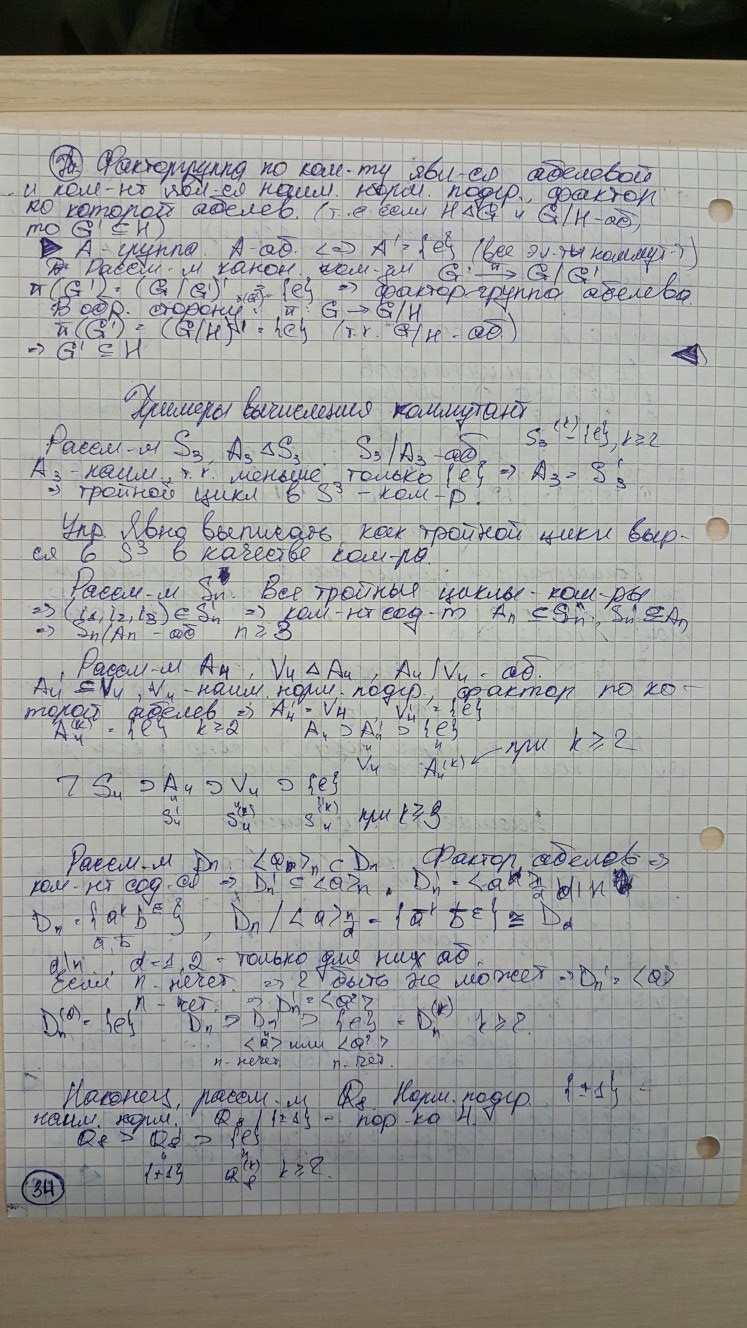 Т. Факторгруппа по ком-ту явл-ся абелевой
и ком-нт явл-ся наим. норм. подгр., фактор
по которой абелев. (т.е если H ⊲ G и G/H - аб,
то G' ⊆ H)
▶ A - группа A - аб. <=> A' = {e} (все эл-ты коммут-т)
Рассм-м канон. ком-зм G' → G/G'
π(G') = (G/G')' = {e} => фактор-группа абелева.
В обр. сторону: π: G → G/H
π(G') = (G/H)' = {e} (т.к. G/H - аб.)
=> G' ⊆ H ◀
Примеры вычисления коммутант
Рассм-м S₃, A₃ ⊲ S₃ S₃/A₃ - аб. S₃⁽ᵏ⁾ = {e}, k ≥ 2
A₃ - наим., т.к. меньше только {e} => A₃ = S₃'
=> тройной цикл в S³ - ком-р.
Упр. Явно выписать, как тройной цикл выр-
ся в S³ в качестве ком-ра.
Рассм-м Sₙ. Все тройные циклы - ком-ры
=> (i₁, i₂, i₃) ∈ Sₙ' => ком-нт сод-т Aₙ ⊆ Sₙ', Sₙ' ⊆ Aₙ
=> Sₙ/Aₙ - аб n ≥ 3
Рассм-м A₄, V₄ ⊲ A₄, A₄/V₄ - аб.
A₄' ⊆ V₄, V₄ - наим. норм. подгр., фактор по ко-
торой абелев => A₄' = V₄, V₄' = {e}
A₄⁽ᵏ⁾ = {e} k ≥ 2 A₄ ⊃ A₄' ⊃ {e}
V₄ A₄⁽ᵏ⁾ ← при k ≥ 2
S₄ ⊃ A₄ ⊃ V₄ ⊃ {e}
S₄' S₄'' S₄⁽ᵏ⁾ при k ≥ 3
Рассм-м Dₙ <a>ₙ ⊂ Dₙ Фактор абелев =>
ком-нт сод-ся => Dₙ' ⊆ <a>ₙ.
Dₙ = {aᵏ bᵋ}, Dₙ/<a>ₙ/d = {āᵏ b̄ᵋ} ≅ D_d
a, b
d|n, d = 1, 2 - только для них аб.
Если n - нечет. => 2 быть не может => Dₙ' = <a>
n - чет. => Dₙ' = <a²>
Dₙ⁽²⁾ = {e} Dₙ ⊃ Dₙ' ⊃ {e} = Dₙ⁽ᵏ⁾ k ≥ 2.
<a> или <a²>
n - нечет. n - чет.
Наконец, рассм-м Q₈. Норм. подгр. {±1} -
наим. норм. Q₈/{±1} - пор-ка 4.
Q₈ ⊃ Q₈' ⊃ {e}
{±1} Q₈⁽ᵏ⁾ k ≥ 2.
34